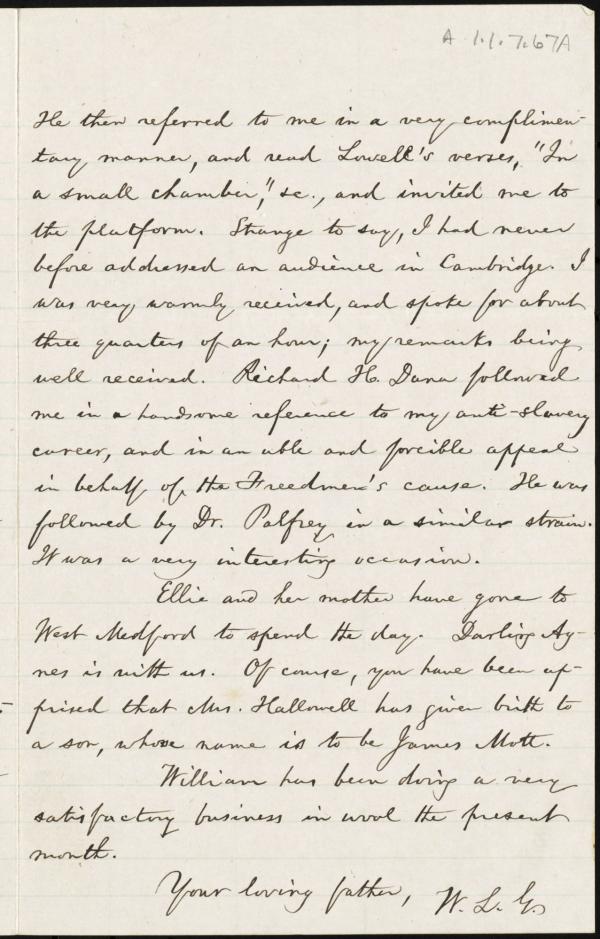 A 1.1.7.67A
He then referred to me in a very complimen-
tary manner, and read Lowell's verses, "In
a small chamber," &c., and invited me to
the platform. Strange to say, I had never
before addressed an audience in Cambridge. I
was very warmly received, and spoke for about
three quarters of an hour; my remarks being
well received. Richard H. Dana followed
me in a handsome reference to my anti-slavery
career, and in an able and forcible appeal
in behalf of the Freedmen's cause. He was
followed by Dr. Palfrey in a similar strain.
It was a very interesting occasion.
Ellie and her mother have gone to
West Medford to spend the day. Darling Ag-
nes is with us. Of course, you have been ap-
prised that Mrs. Hallowell has given birth to
a son, whose name is to be James Mott.
William has been doing a very
satisfactory business in wool the present
month.
Your loving father, W. L. G.